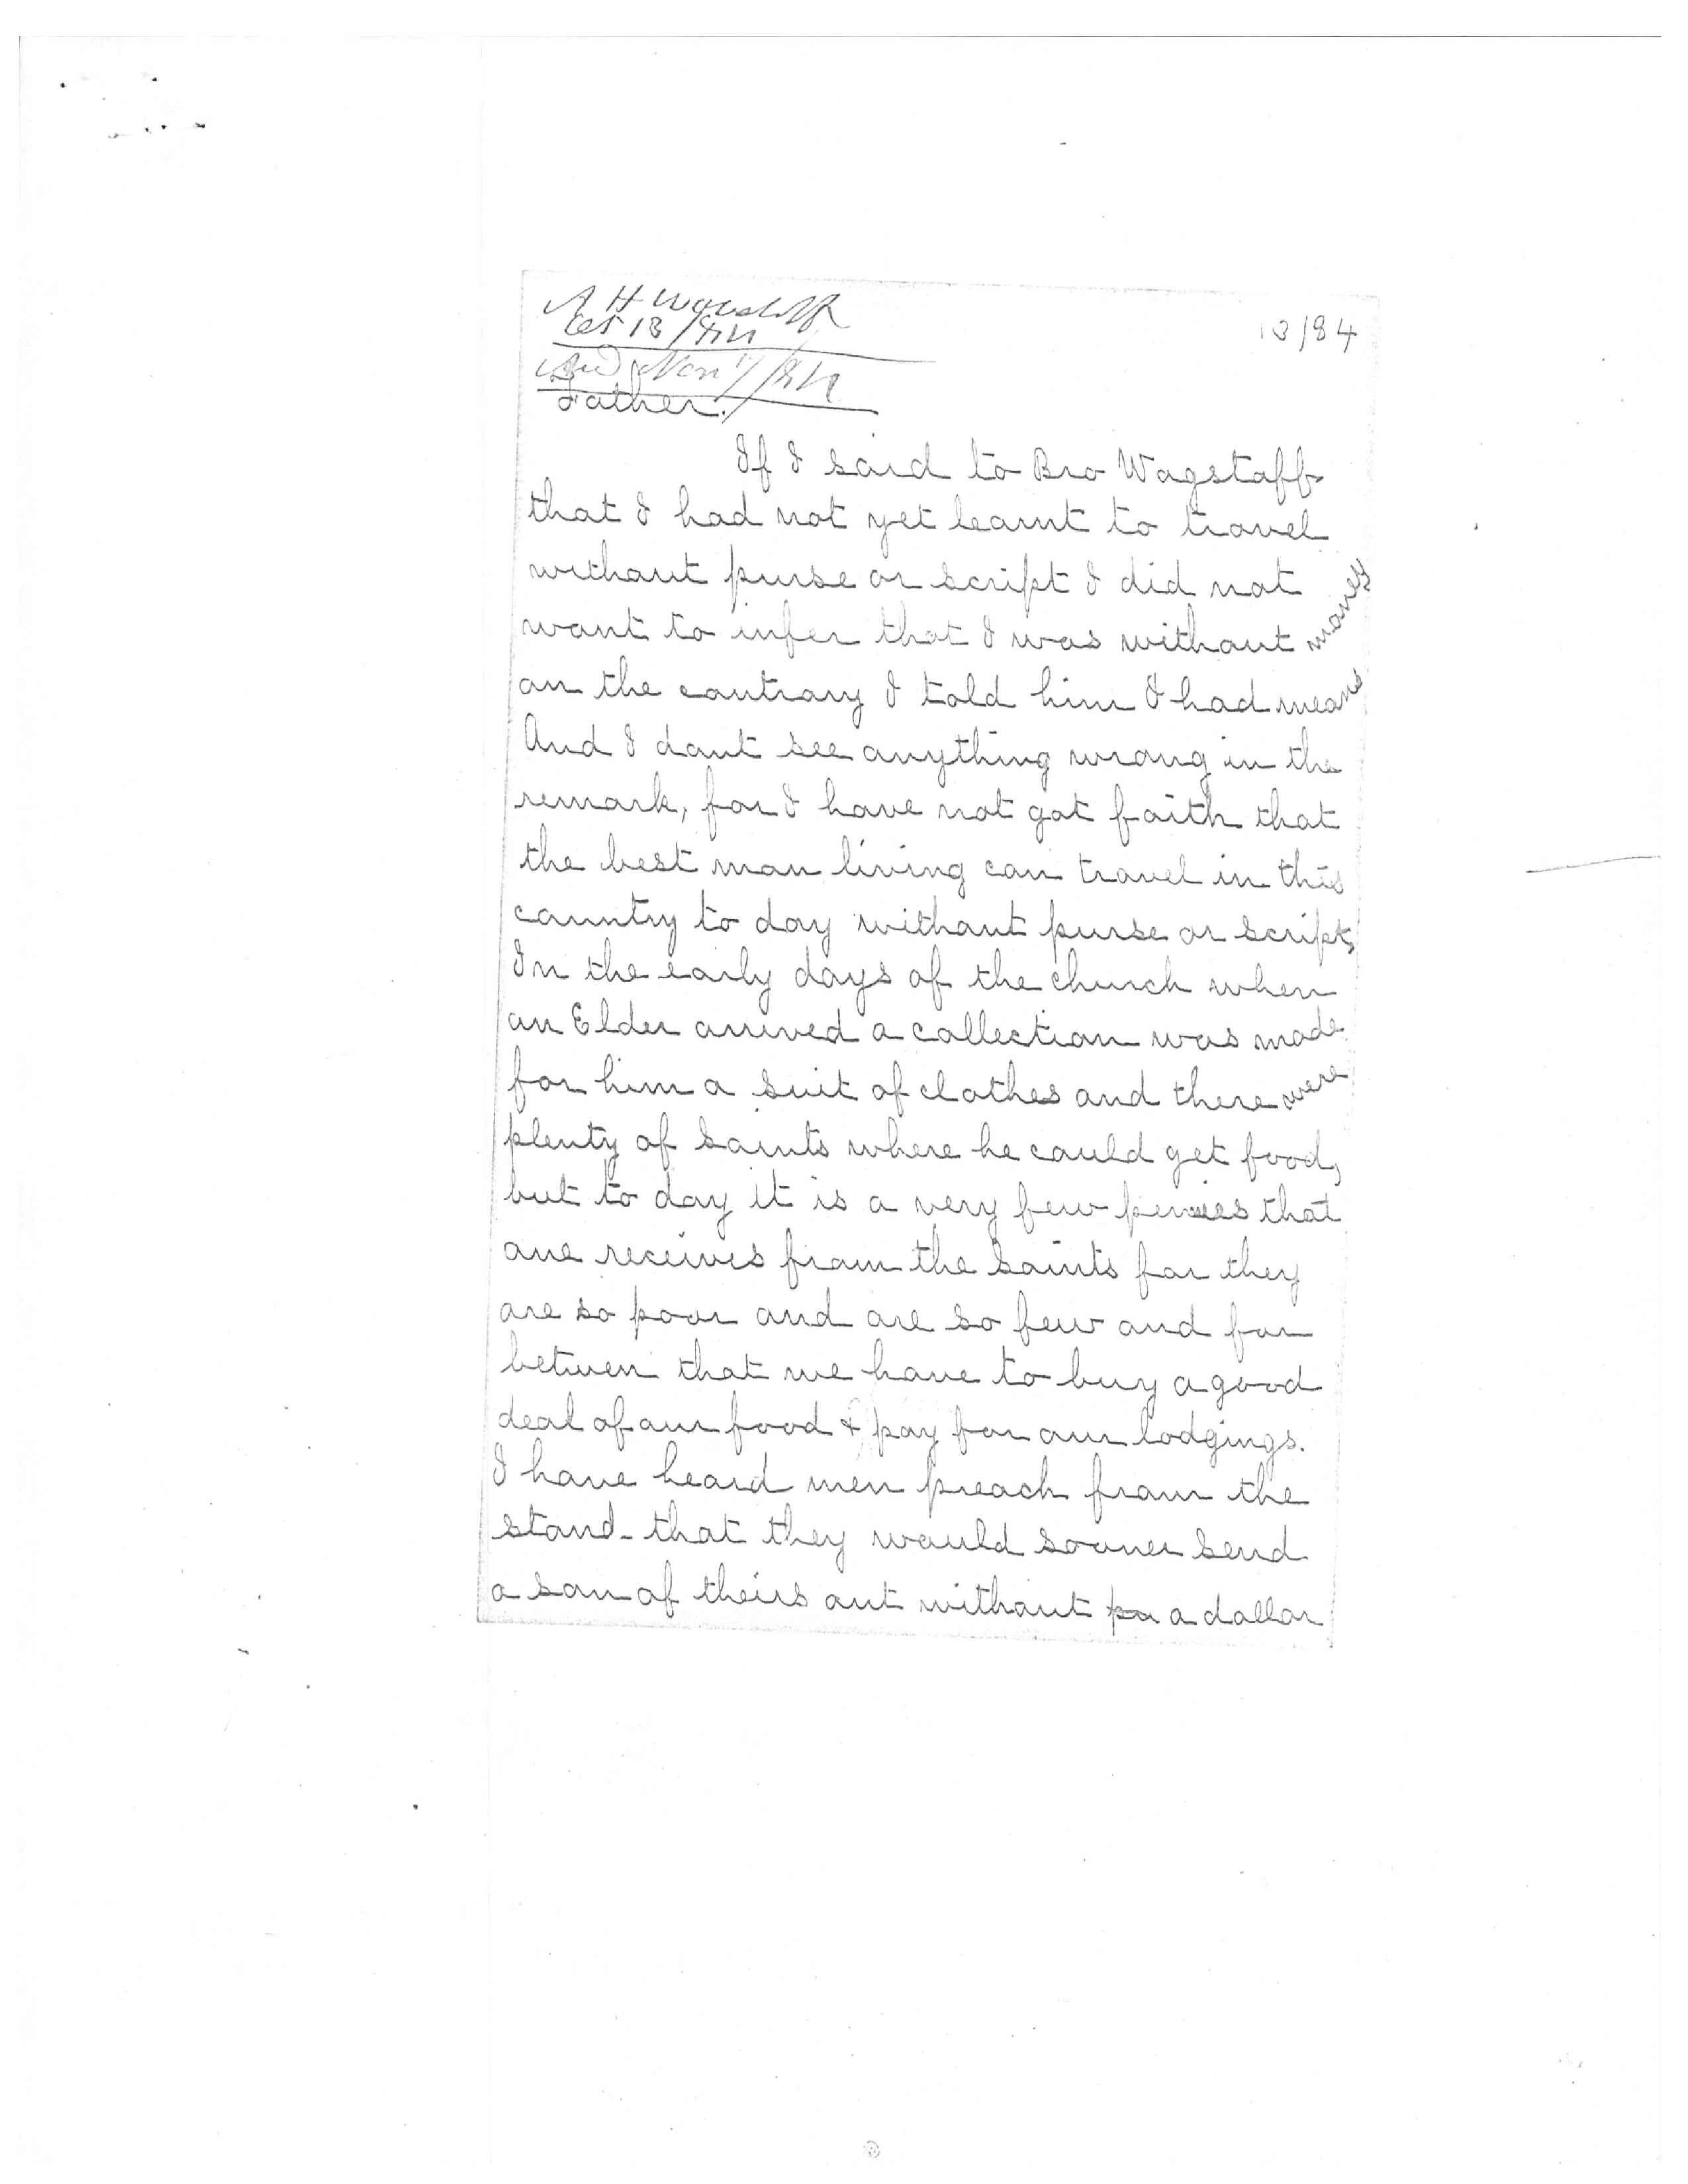 A H Woodruff
Oct 13/84
13/84
Nov 1/84
Father.
If I said to Bro Wagstaff
that I had not yet learnt to travel
without purse or script I did not
want to infer that I was without money
on the contrary I told him I had means
And I dont see anything wrong in the
remark, for I have not got faith that
the best man living can travel in this
country to day without purse or script,
In the early days of the church when
an Elder arrived a collection was made
for him a suit of clothes and there were
plenty of Saints where he could get food,
but to day it is a very few pennies that
one receives from the Saints for they
are so poor and are so few and far
between that we have to buy a good
deal of our food & pay for our lodgings.
I have heard men preach from the
stand - that they would sooner send
a son of theirs out without pu a dollar